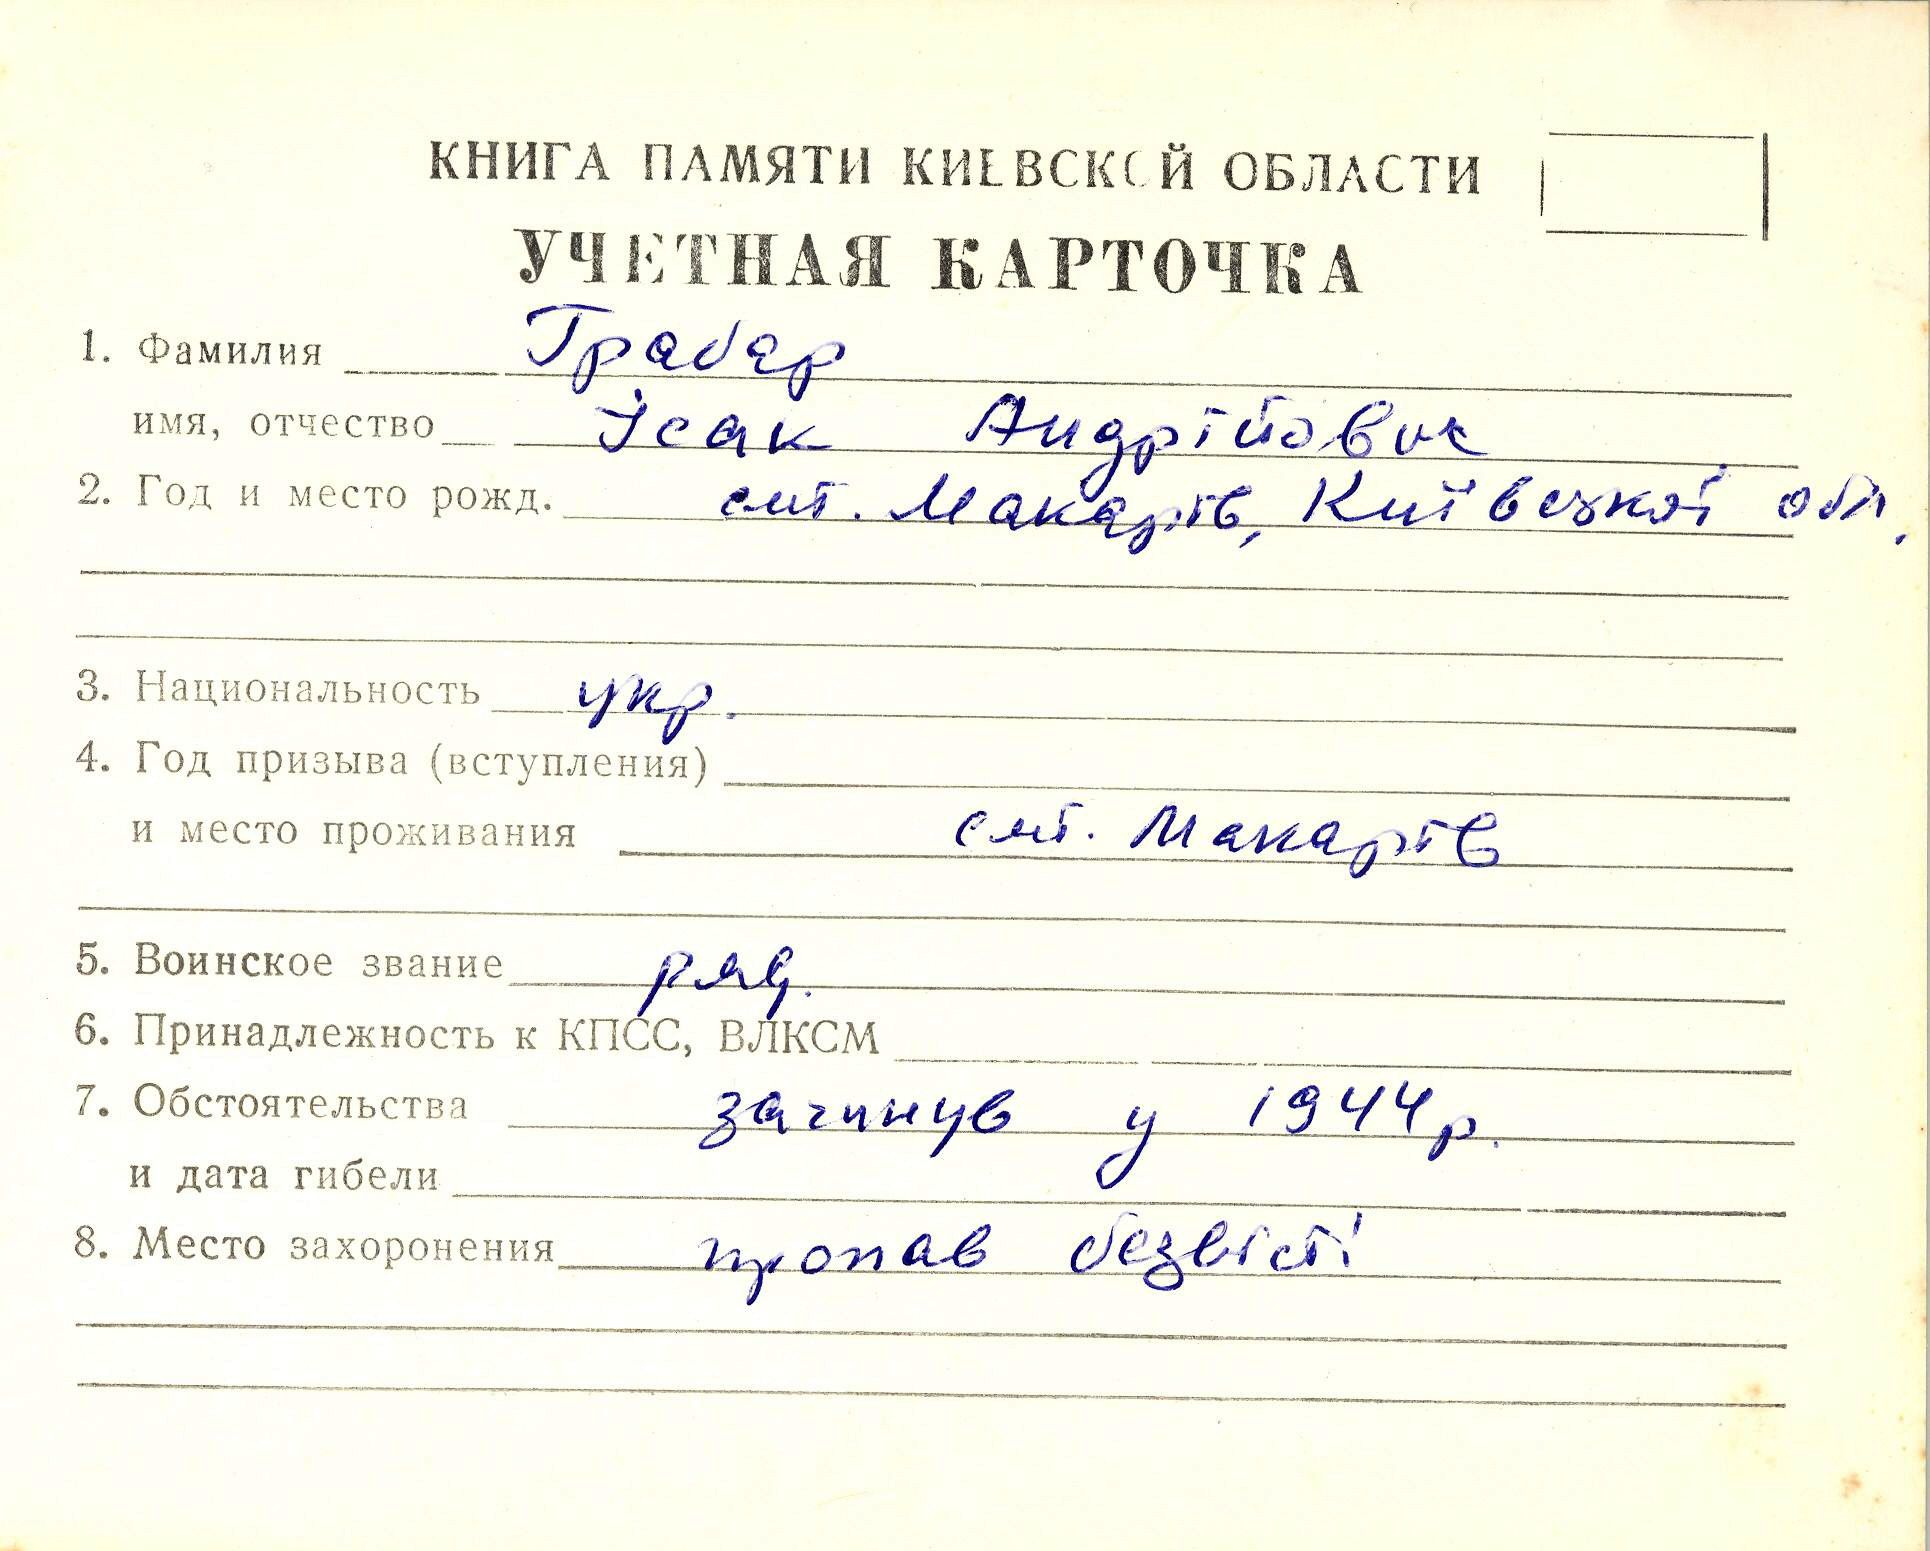 КНИГА ПАМЯТИ КИЕВСКОЙ ОБЛАСТИ
УЧЕТНАЯ КАРТОЧКА
1. Фамилия Грабар
имя, отчество Ісак Андрійович
2. Год и место рожд. смт. Макарів, Київської обл.
3. Национальность укр.
4. Год призыва (вступления)
и место проживания смт. Макарів
5. Воинское звание ряд.
6. Принадлежность к КПСС, ВЛКСМ
7. Обстоятельства загинув у 1944 р.
и дата гибели
8. Место захоронения пропав безвісті